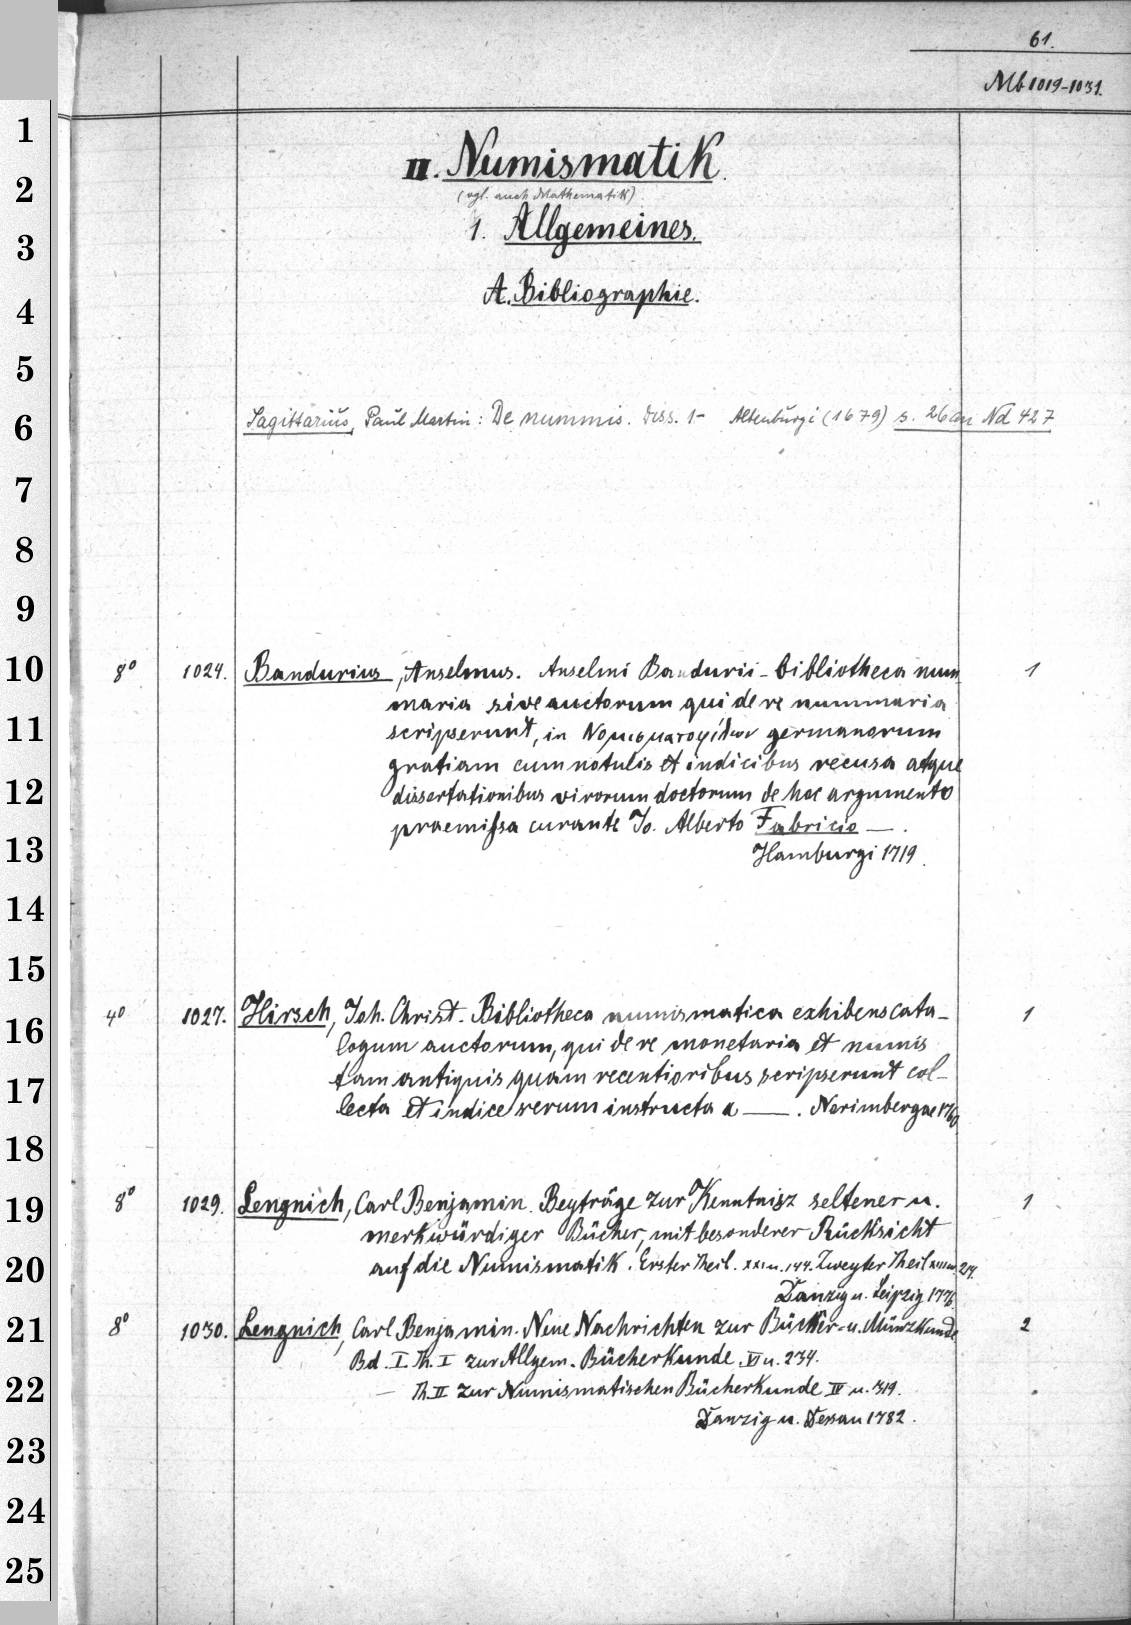 61.
Mb 1019-1031.
II. Numismatik.
(vgl. auch Mathematik)
1. Allgemeines.
A. Bibliographie.
Sagittarius, Paul Martin: De nummis. Diss. 1- Altenburgi (1679) s. 26 an Nd 427
8° 1024. Bandurius, Anselmus. Anselmi Bandurii - bibliotheca num- 1
maria sive auctorum qui de re nummaria
scripserunt, in Νομισματοφίλων germanorum
gratiam cum notulis et indicibus recusa atque
dissertationibus virorum doctorum de hoc argumento
praemissa curante Jo. Alberto Fabricio —.
Hamburgi 1719.
4° 1027. Hirsch, Joh. Christ. Bibliotheca numismatica exhibens cata- 1
logum auctorum, qui de re monetaria et numis
tam antiquis quam recentioribus scripserunt col-
lecta et indice rerum instructa a —. Norimbergae 1760.
8° 1029. Lengnich, Carl Benjamin. Beyträge zur Kenntnisz seltener u. 1
merkwürdiger Bücher, mit besonderer Rücksicht
auf die Numismatik. Erster Theil. XXI u. 144. Zweyter Theil u. 214.
Danzig u. Leipzig 1776.
8° 1030. Lengnich, Carl Benjamin. Neue Nachrichten zur Bücher- u. Münzkunde 2
Bd. I. Th. I zur Allgem. Bücherkunde VI u. 234.
— Th. II zur Numismatischen Bücherkunde IV u. 319.
Danzig u. Dessau 1782.
1
2
3
4
5
6
7
8
9
10
11
12
13
14
15
16
17
18
19
20
21
22
23
24
25